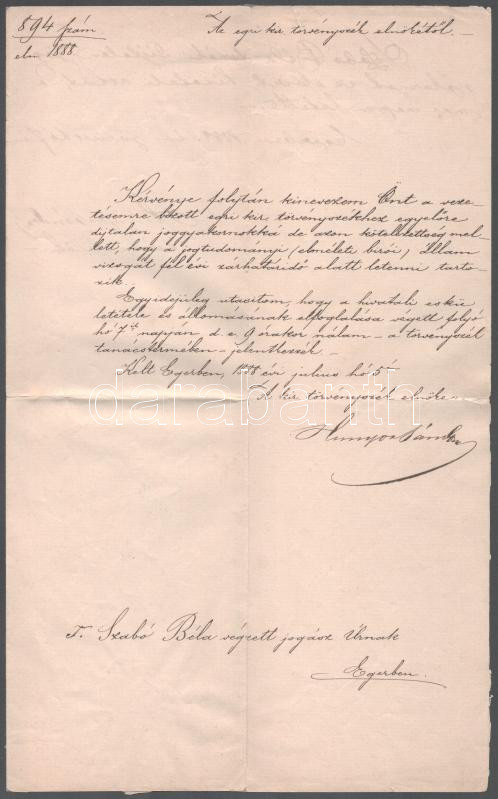 894 szám
eln 1888.
Az egri kir. törvényszék elnökétől. –
Kérvénye folytán kinevezem Önt a veze-
tésemre bízott egri kir. törvényszékhez egyelőre
díjtalan joggyakornokká de azon kötelezettség mel-
lett, hogy a jogtudományi (elméleti birói) állam
vizsgát fél évi zárhatáridő alatt letenni tarto-
zik.
Egyidejüleg utasitom, hogy a hivatali eskü
letétele és állomásának elfoglalása végett folyó
hó 7én napján, d. e. 9 órakor nálam – a törvényszék
tanácstermében – jelentkezzék. –
Kelt Egerben, 1888 évi julius hó 5
A kir. törvényszék elnöke
Sándor
darabanth
T. Szabó Béla végzett jogász Úrnak
Egerben.